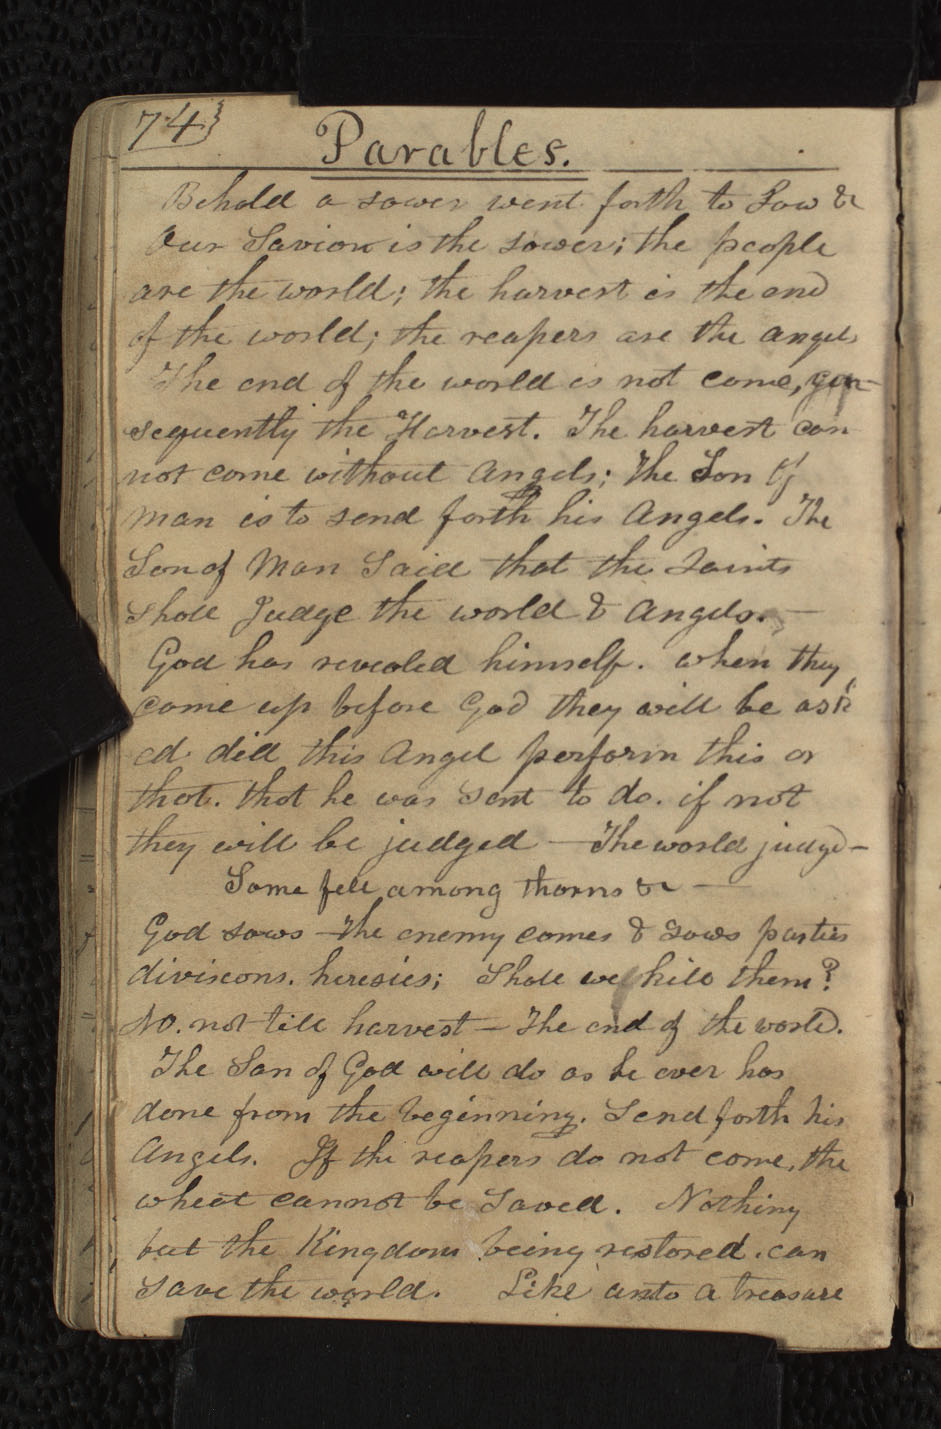 74}
Parables.
Behold a sower went forth to Sow &c
Our Savior is the sower; the people
are the world; the harvest is the end
of the world; the reapers are the angels
The end of the world is not come, con-
sequently the Harvest. The harvest can
not come without Angels; The Son of
man is to send forth his Angels. The
Son of Man Said that the Saints
shall Judge the world & angels. —
God has revealed himself. when they
come up before God they will be ask
ed did this Angel perform this or
that. that he was sent to do. if not
they will be judged — The world judgd —
Some fell among thorns &c —
God sows — the enemy comes & sows parties
divisions. heresies; Shall we kill them?
No. not till harvest — The end of the world.
The Son of God will do as he ever has
done from the beginning. Send forth his
Angels. If the reapers do not come, the
wheat cannot be Saved. Nothing
but the Kingdom being restored. can
save the world. Like unto a treasure